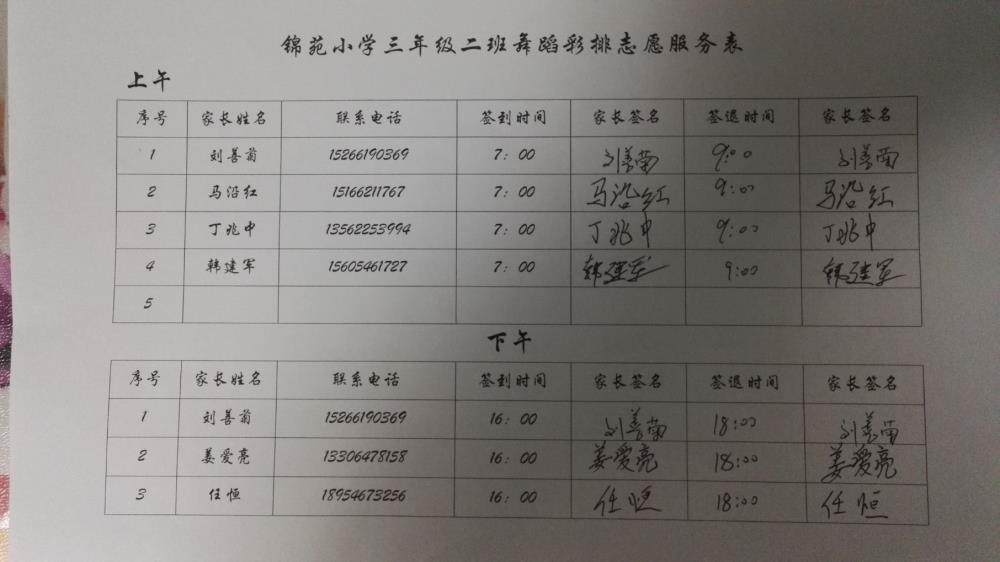 锦苑小学三年级二班舞蹈彩排志愿服务表
上午
序号 家长姓名 联系电话 签到时间 家长签名 签退时间 家长签名
1 刘善菊 15266190369 7：00 刘善菊 9:00 刘善菊
2 马沿红 15166211767 7：00 马沿红 9:00 马沿红
3 丁兆中 13562253994 7：00 丁兆中 9:00 丁兆中
4 韩建军 15605461727 7：00 韩建军 9:00 韩建军
5
下午
序号 家长姓名 联系电话 签到时间 家长签名 签退时间 家长签名
1 刘善菊 15266190369 16：00 刘善菊 18:00 刘善菊
2 姜爱亮 13306478158 16：00 姜爱亮 18:00 姜爱亮
3 任恒 18954673256 16：00 任恒 18:00 任恒